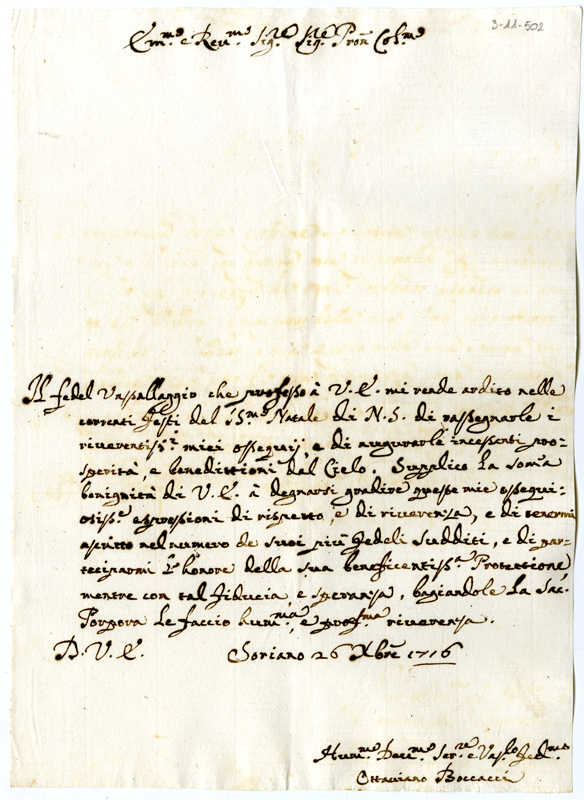 3-11-502
Em.mo e Rev.mo Sig.re Sig.re Pron Col.mo
Il fedel Vassallaggio che professo à V.E. mi rende ardito nelle
correnti Festi del SS.mo Natale di N.S. di rassegnarle i
riverentiss.i miei ossequij, e di augurarle incessenti pro-
sperità, e benedittioni dal Cielo. Supplico la som̄a
benignità di V.E. à degnarsi gradire queste mie ossequi-
osiss.e espressioni di rispetto, e di riverenza, e di tenermi
ascritto nel numero de suoi più Fedeli Sudditi, e di par-
teciparmi l'honore della sua beneficentiss.a Protettione
mentre con tal fiducia e speranza, bagiandole la Sac.
Porpora le faccio hum.ma, e prof.ma riverenza.
D.V.E. Soriano 26 Xbre 1716
Hum.mo Dev.mo Ser.re e Vas.lo Fed.mo
Ottaviano Boccacci